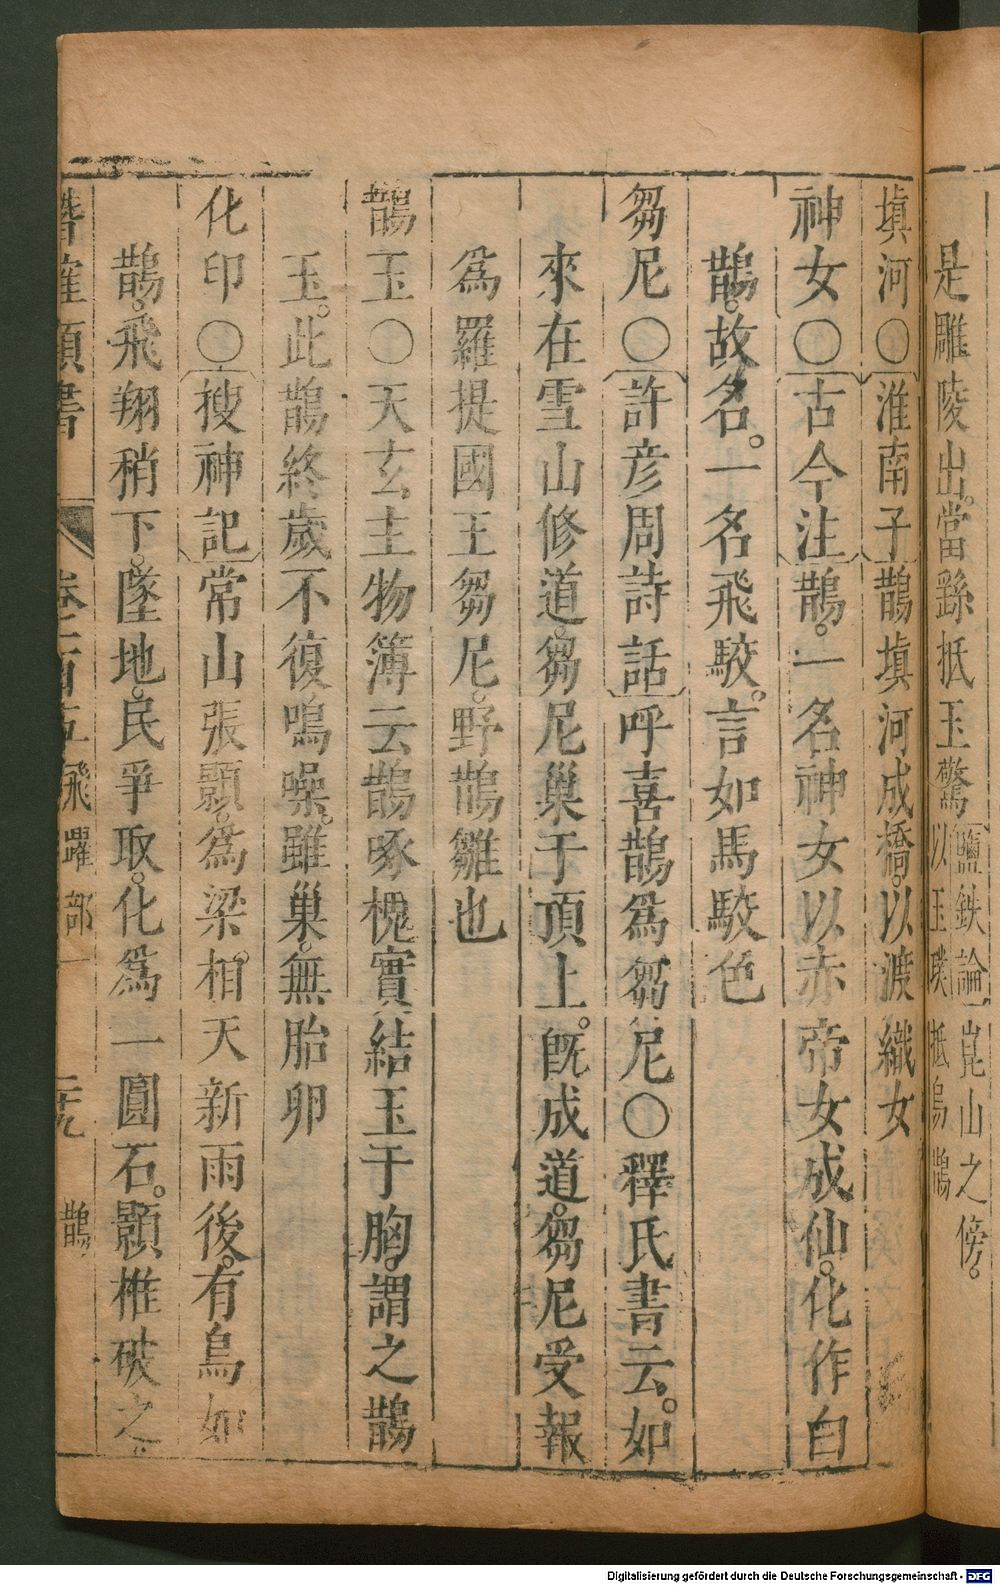 是雕陵出。當䋣抵玉驚鹽鐵論崑山之傍。以玉璞抵烏鵲
填河○淮南子鵲填河成橋。以渡織女
神女○古今注鵲。一名神女以赤帝女成仙。化作白
鵲。故名。一名飛駮。言如馬駮色
芻尼○許彦周詩話呼喜鵲爲芻尼○釋氏書云。如
來在雪山修道。芻尼巢于頂上。旣成道。芻尼受報
爲羅提國王芻尼。野鵲雛也
鵲玉○天玄主物簿云鵲啄槐實結玉于胸。謂之鵲
玉。此鵲終歲不復鳴噪。雖巢。無胎卵
化印○搜神記常山張顥。爲梁相。天新雨後。有鳥如
鵲。飛翔稍下。墜地。民爭取。化爲一圓石。顥椎破之。
潛確類書 卷一百五 飛躍部一 二十九 鵲
Digitalisierung gefördert durch die Deutsche Forschungsgemeinschaft - DFG